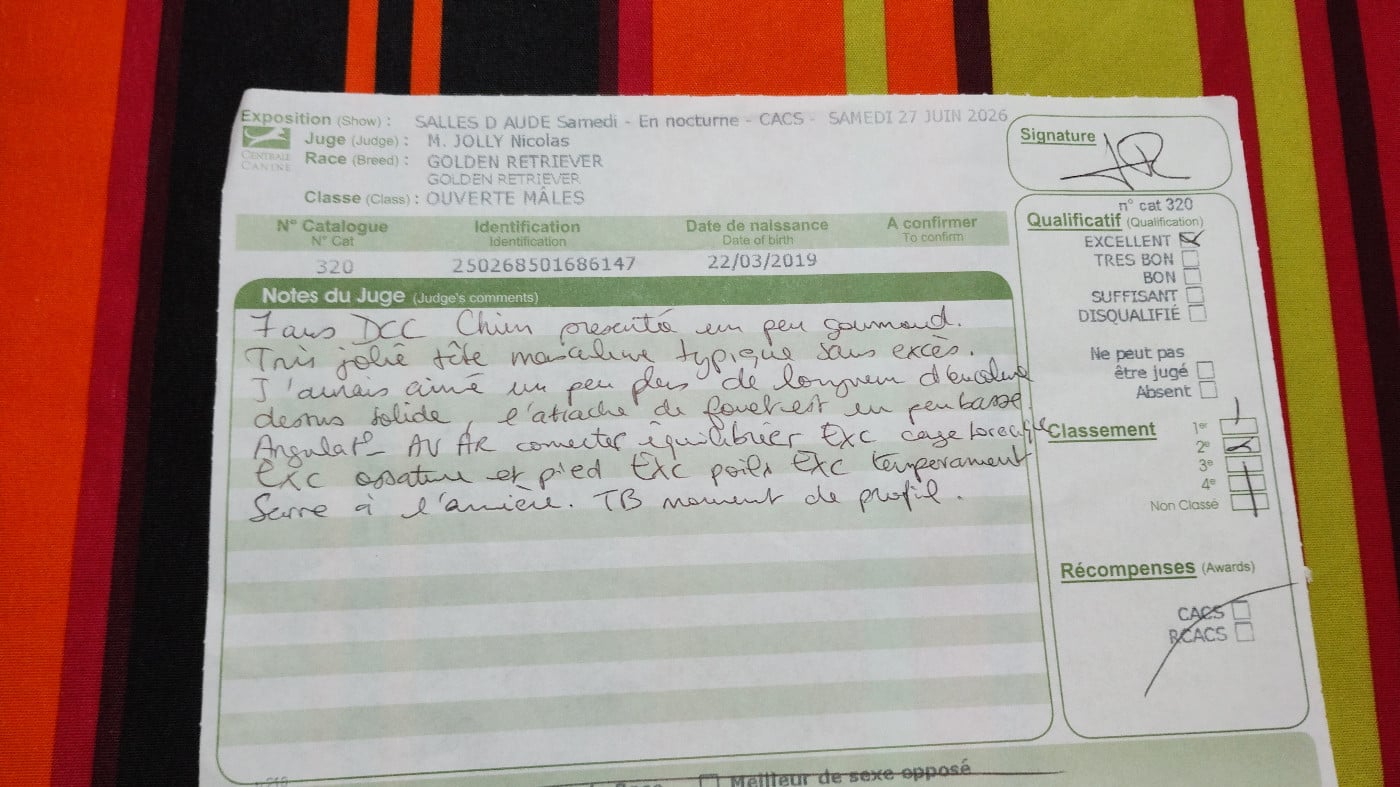 Exposition (Show) : SALLES D AUDE Samedi - En nocturne - CACS - SAMEDI 27 JUIN 2026
CENTRALE CANINE
Juge (Judge) : M. JOLLY Nicolas
Race (Breed) : GOLDEN RETRIEVER
GOLDEN RETRIEVER
Classe (Class) : OUVERTE MÂLES
Signature
N° Catalogue Identification Date de naissance A confirmer
N° Cat Identification Date of birth To confirm
320 250268501686147 22/03/2019
Notes du Juge (Judge's comments)
7 ans DCC Chien presenté un peu gourmand.
Très jolie tête masculine typique sans excès.
J'aurais aimé un peu plus de longueur d'encolure
dessus solide, l'attache de fouet est un peu basse.
Angulat° AV AR correcter équilibrier Exc cage
Exc ossature et pied Exc poils Exc temperament
Serre à l'arrière. TB mouvment de profil.
n° cat 320
Qualificatif (Qualification)
EXCELLENT
TRES BON
BON
SUFFISANT
DISQUALIFIÉ
Ne peut pas
être jugé
Absent
Classement
1er
2e
3e
4e
Non Classé
Récompenses (Awards)
CACS
RCACS
Meilleur de sexe opposé